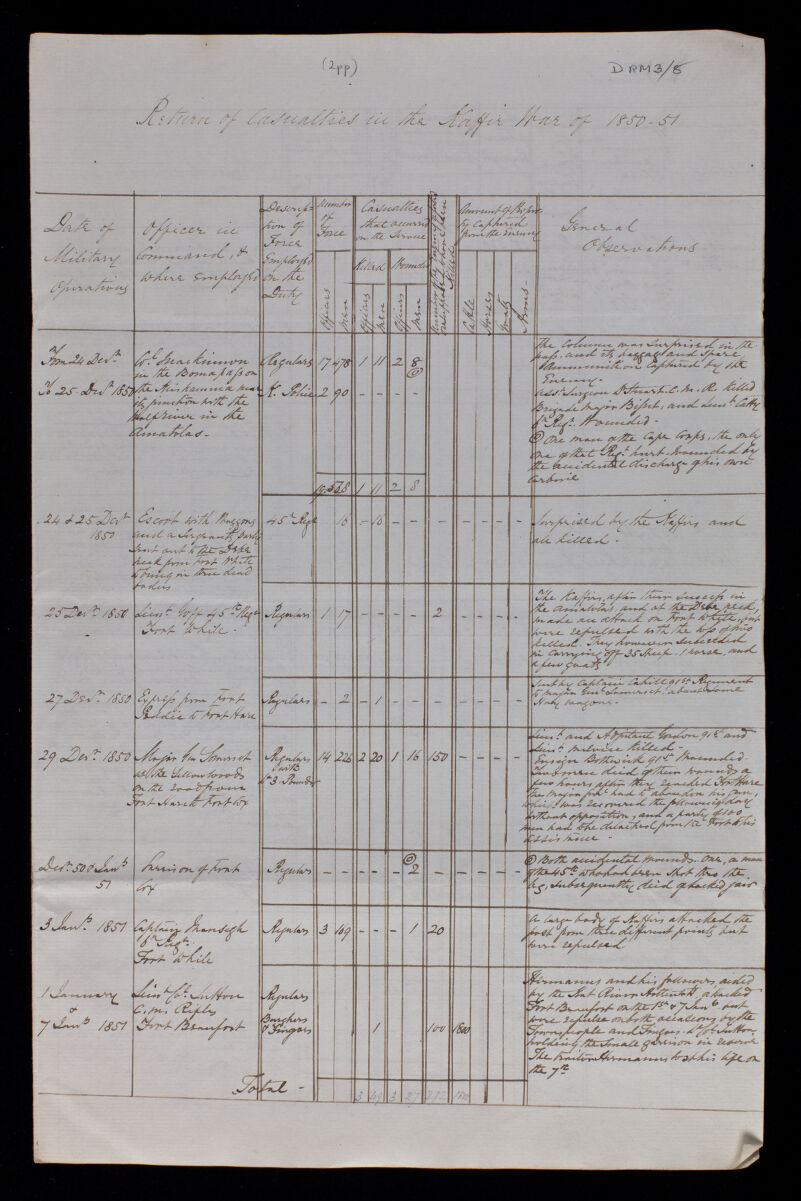 (2pp)
DRM3/5
Return of Casualties in the Kaffir War of 1850-51
Date of
Military
Operations
Officer in
Command, &
where employed
Descrip-
tion of
Force
Employed
on the
Duty
Number
of
Force
Officers
Men
Casualties
that occurred
on the Service
Killed
Wounded
Officers
Men
Officers
Men
Killed
Amount of
by Captured
from the Enemy
Cattle
Horses
Goats
Arms
General
Observations
From 24 Decr
To 25 Decr 1850
Col. Mackinnon
in the Bomapass on
the Keiskamma near
its junction with the
Wolf river in the
Amatolas -
Regulars 17 478 1 11 2 8
K. Police 2 90 - - - -
19 568 1 11 2 8
The Column was Surprised in the
pass, and its baggage and Spare
Ammunition Captured by the
Enemy -
Asst Surgeon Stuart C. M. R. Killed
Brigade Major Bisset, and Lieut Catty
6th Regt Wounded -
One man of the Cape Corps, the only
one of that Regt hurt. Wounded by
the accidental discharge of his own
Carbine
24 & 25 Decr
1850
Escort with Waggons
and a Sergeants party
Sent out to the Debe
neck from Fort White
to bring in three dead
bodies
45th Regt 16 - 16 - - - - - - -
Surprised by the Kaffirs and
all killed -
25 Decr 1850
Lieut 45th Regt
Fort White -
Regulars 1 17 - - - - 2
The Kaffirs, after their success in
the Amatolas and at the Debe neck,
made an attack on Fort White, but
were repulsed with the loss of two
killed. They however succeeded
in carrying off 35 Sheep. 1 horse, and
a few goats
27 Decr 1850
Express from Fort
Peddie to Fort Hare
Regulars - 2 - 1 - - - - - - -
Sent by Captain Cahill 91st Regiment
to Major Genl Somerset, about some
waggons -
29 Decr 1850
Major Gen Somerset
at the Yellowwoods
on the road from
Fort Hare to Fort Cox
Regulars 14 226 2 20 1 16 150 - - - -
with
3 Pounder
Lieut and Adjutant Gordon 91st and
Lieut Melvin Killed -
Ensign Borthwick 91st Wounded -
Two more died of their wounds a
few hours after they reached Fort Hare
The Major Genl had to abandon his gun,
which was recovered the following day
without opposition, and a party of 100
men had to be detached from the Fort to his
assistance -
Decr 50 & Jany
51
Garrison of Fort
Cox
Regulars - - - - - 2 - - - - -
Both accidental wounds. One, a man
of the 45th who had been shot thro the
leg, subsequently died of locked jaw
3 Jany 1851
Captain Mansergh
6th Regt
Fort White
Regulars 3 49 - - - 1 20
A large body of Kaffirs attacked the
post from three different points but
were repulsed
1 January
&
7 Jany 1851
Lieut Col. Sutton
C. M. Rifles
Fort Beaufort
Regulars
Burghers
& Fingoes 1 100 180
Hermanus and his followers, aided
by the Kat River Hottentots, attacked
Fort Beaufort on the 1st & 7 Jany but
were repulsed on both occasions by the
Townspeople and Fingoes. Lt Col. Sutton
holding the small garrison in reserve
The traitor Hermanus lost his life on
the 7th
Total - 3 49 3 27 272 180